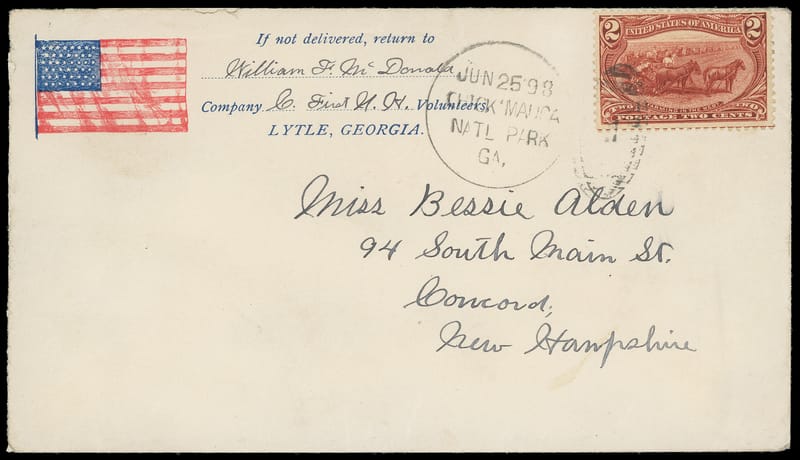 If not delivered, return to
William F. McDonald
Company C. First N. H. Volunteers,
LYTLE, GEORGIA.
JUN 25 98
CHICK'MAUGA
NATL PARK
GA,
2 2
UNITED STATES OF AMERICA
FARMING IN THE WEST
TWO TWO
POSTAGE TWO CENTS
Miss Bessie Alden
94 South Main St.
Concord,
New Hampshire